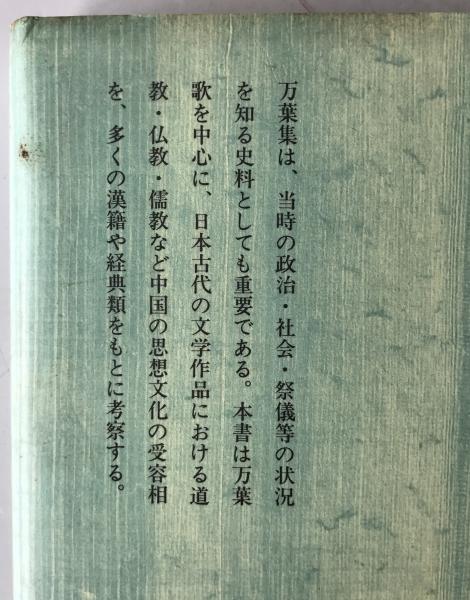 万葉集は、当時の政治・社会・祭儀等の状況
を知る史料としても重要である。本書は万葉
歌を中心に、日本古代の文学作品における道
教・仏教・儒教など中国の思想文化の受容相
を、多くの漢籍や経典類をもとに考察する。